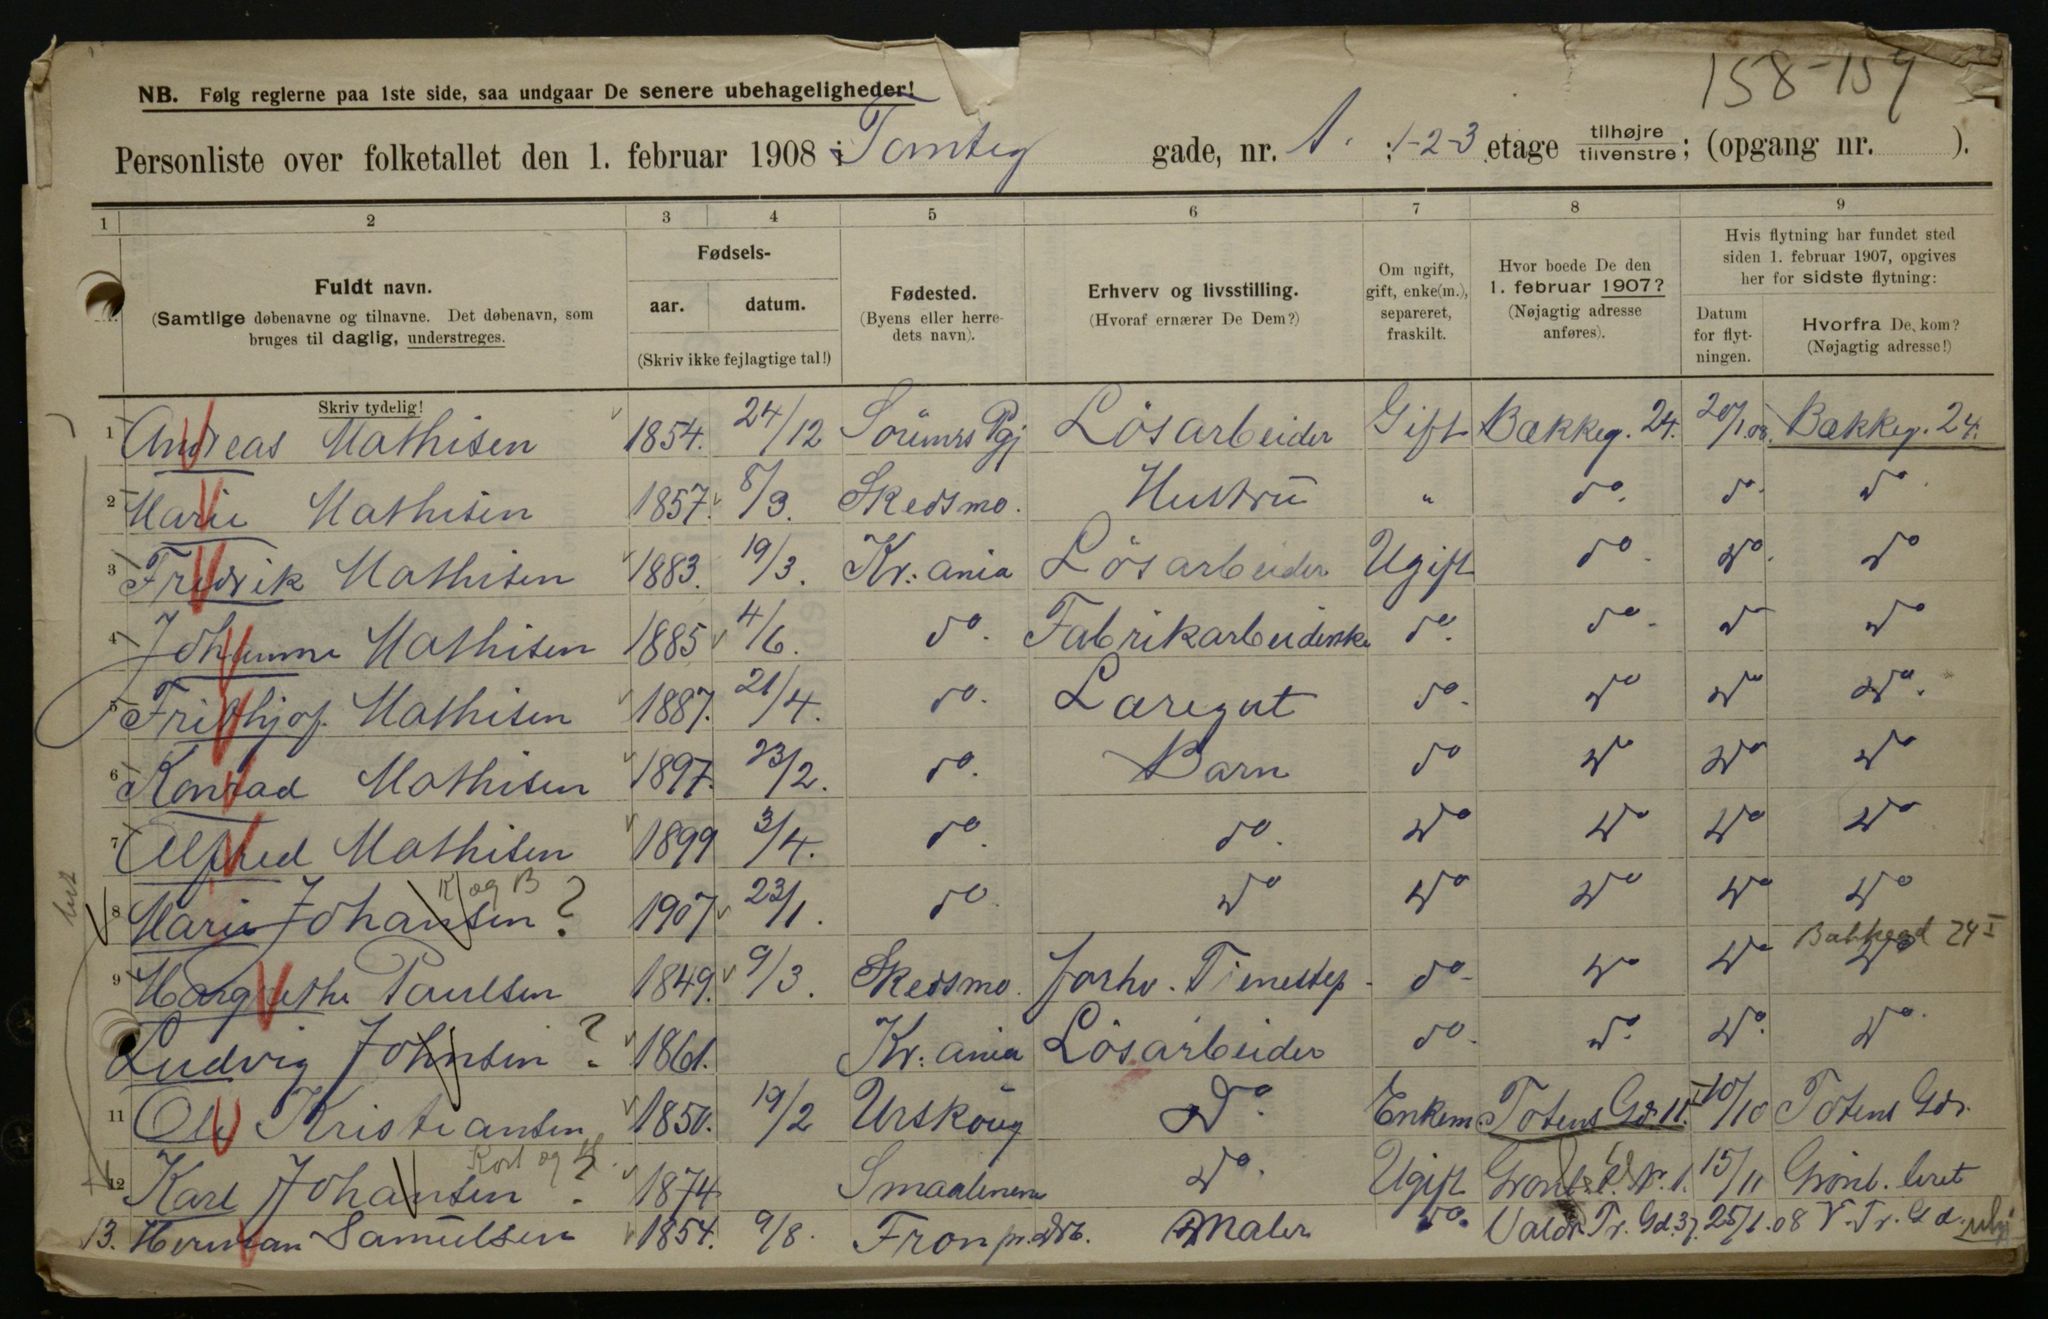 158-159
NB. Følg reglerne paa 1ste side, saa undgaar De senere ubehageligheder!
Personliste over folketallet den 1. februar 1908 i Tomteg gade, nr. 1. ; 1-2-3 etage tilhøjre / tilvenstre ; (opgang nr. ).
1 2 3 4 5 6 7 8 9
Fuldt navn. (Samtlige døbenavne og tilnavne. Det døbenavn, som bruges til daglig, understreges.
Skriv tydelig!
Fødsels- aar. datum. (Skriv ikke fejlagtige tal!)
Fødested. (Byens eller herredets navn).
Erhverv og livsstilling. (Hvoraf ernærer De Dem?)
Om ugift, gift, enke(m.), separeret, fraskilt.
Hvor boede De den 1. februar 1907? (Nøjagtig adresse anføres).
Hvis flytning har fundet sted siden 1. februar 1907, opgives her for sidste flytning:
Datum for flytningen.
Hvorfra De kom? (Nøjagtig adresse!)
1 Andreas Mathisen 1854. 24/12 Sörums Pgj Lösarbeider Gift Bækkeg. 24. 20/1.08. Bækkeg. 24.
2 Marie Mathisen 1857. 8/3. Skedsmo. Hustru " do. do. do.
3 Fredrik Mathisen 1883. 19/3. Kr:ania Lösarbeider Ugift do. do. do
4 Johanne Mathisen 1885 4/6. do. Fabrikarbeiderske do. do. do do
5 Frithjof Mathisen 1887. 21/4. do. Læregut do. do do do.
6 Konrad Mathisen 1897. 23/2. do. Barn do do do do
7 Alfred Mathisen 1899 3/4. do. do. do do do do
K og B
8 Marie Johansen ? 1907 23/1. do do do do do do
Bakkegd 24 I
9 Margrethe Paulsen 1849. 9/3. Skedsmo. forhv. Tienestep. do. do do do
Ludvig Johnsen ? 1861. Kr:ania Lösarbeider do. do. do. do.
11 Ole Kristiansen 1850. 19/2 Urskoug Do. Enkem. Totens Gd. 11. 10/10 Totens Gdr.
Kort og
12 Karl Johansen ? 1874 Smaalenene do. Ugift Grönl. 1. 15/11 Grönl. leret
13. Herman Samuelsen 1854. 9/8. Fron pr. Drb. Maler do. Valdr. Tr. Gd. 37. 25/1.08 V. Tr. Gd.